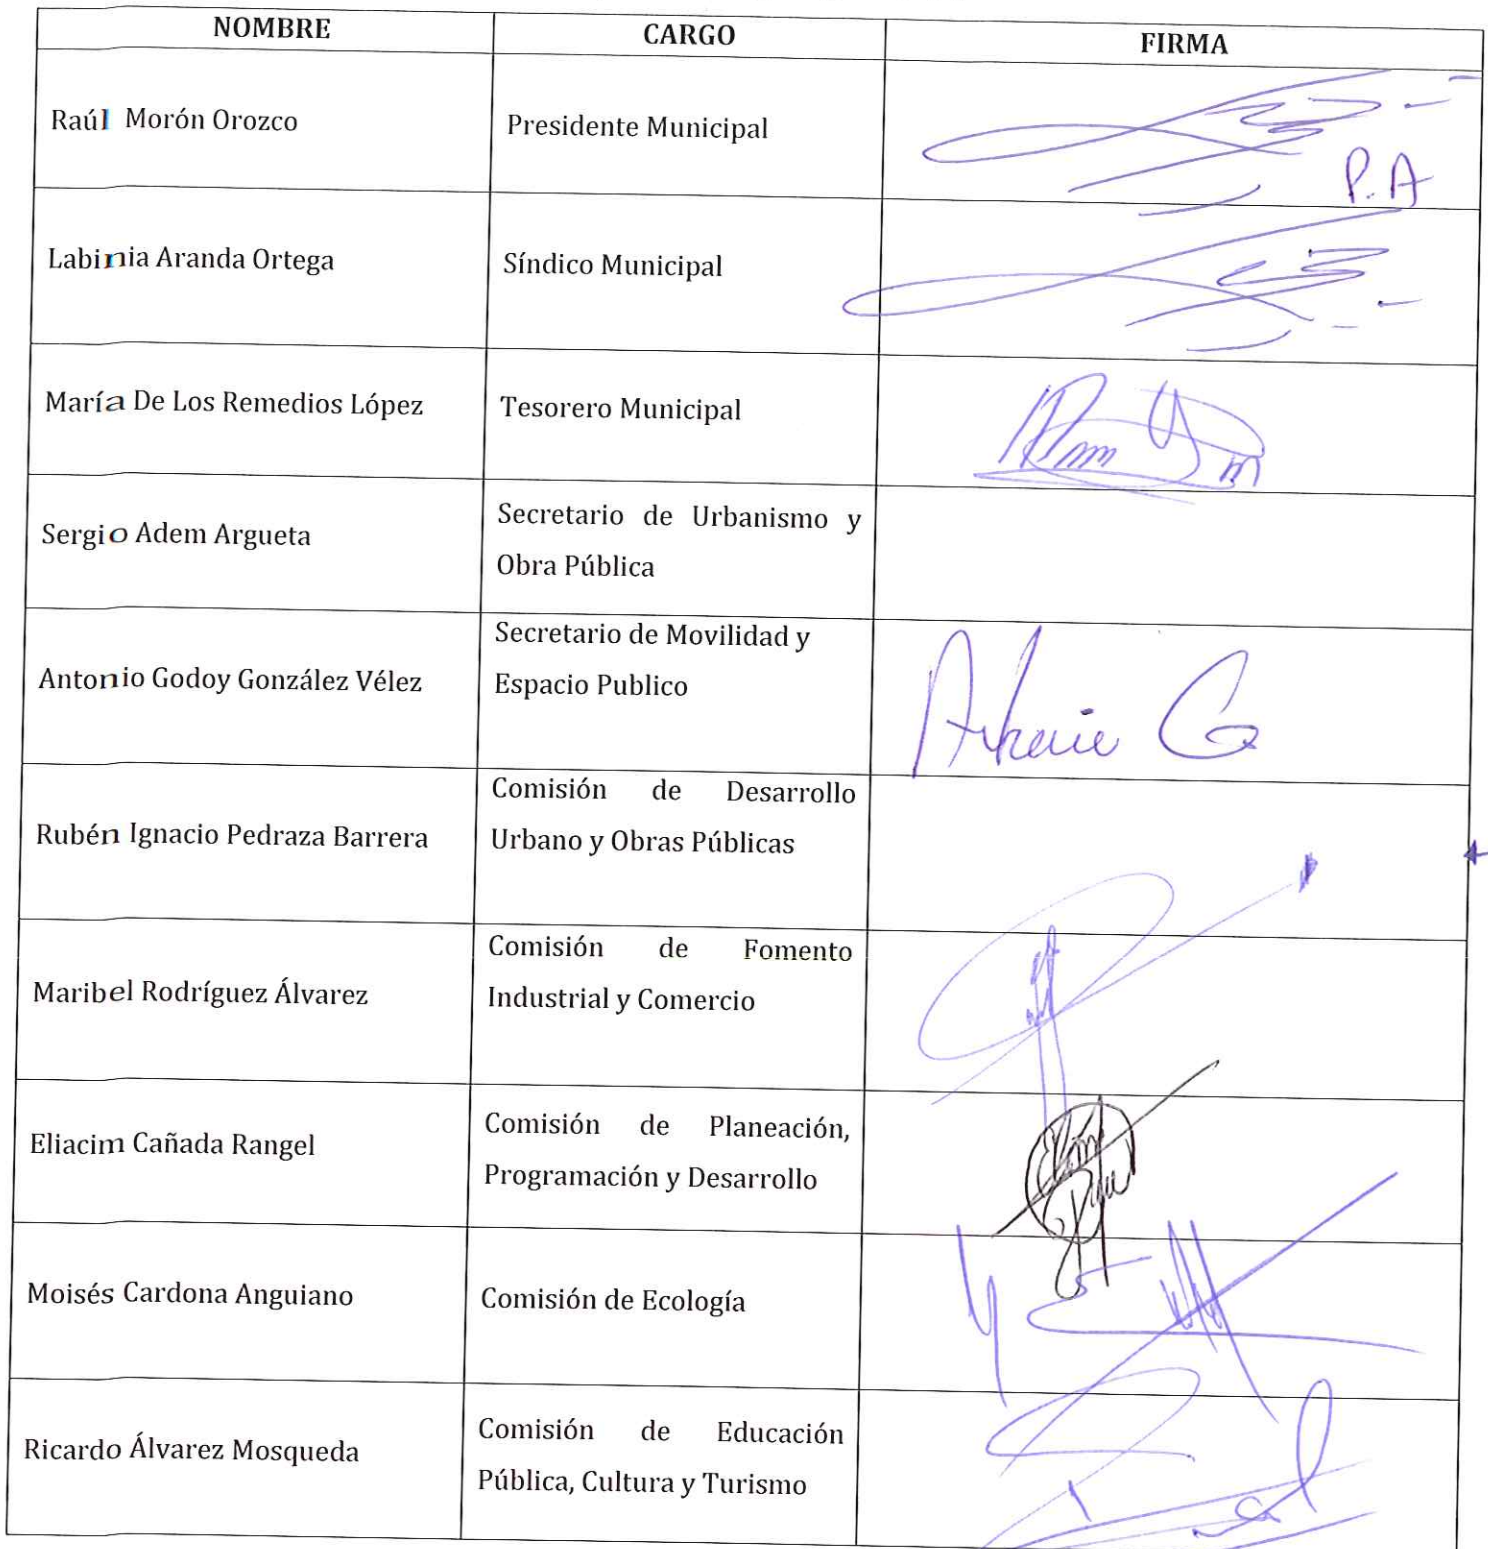 NOMBRE CARGO FIRMA
Raúl Morón Orozco Presidente Municipal
P.A
Labinia Aranda Ortega Síndico Municipal
María De Los Remedios López Tesorero Municipal
Sergio Adem Argueta Secretario de Urbanismo y
Obra Pública
Antonio Godoy González Vélez Secretario de Movilidad y
Espacio Publico
Rubén Ignacio Pedraza Barrera Comisión de Desarrollo
Urbano y Obras Públicas
Maribel Rodríguez Álvarez Comisión de Fomento
Industrial y Comercio
Eliacim Cañada Rangel Comisión de Planeación,
Programación y Desarrollo
Moisés Cardona Anguiano Comisión de Ecología
Ricardo Álvarez Mosqueda Comisión de Educación
Pública, Cultura y Turismo